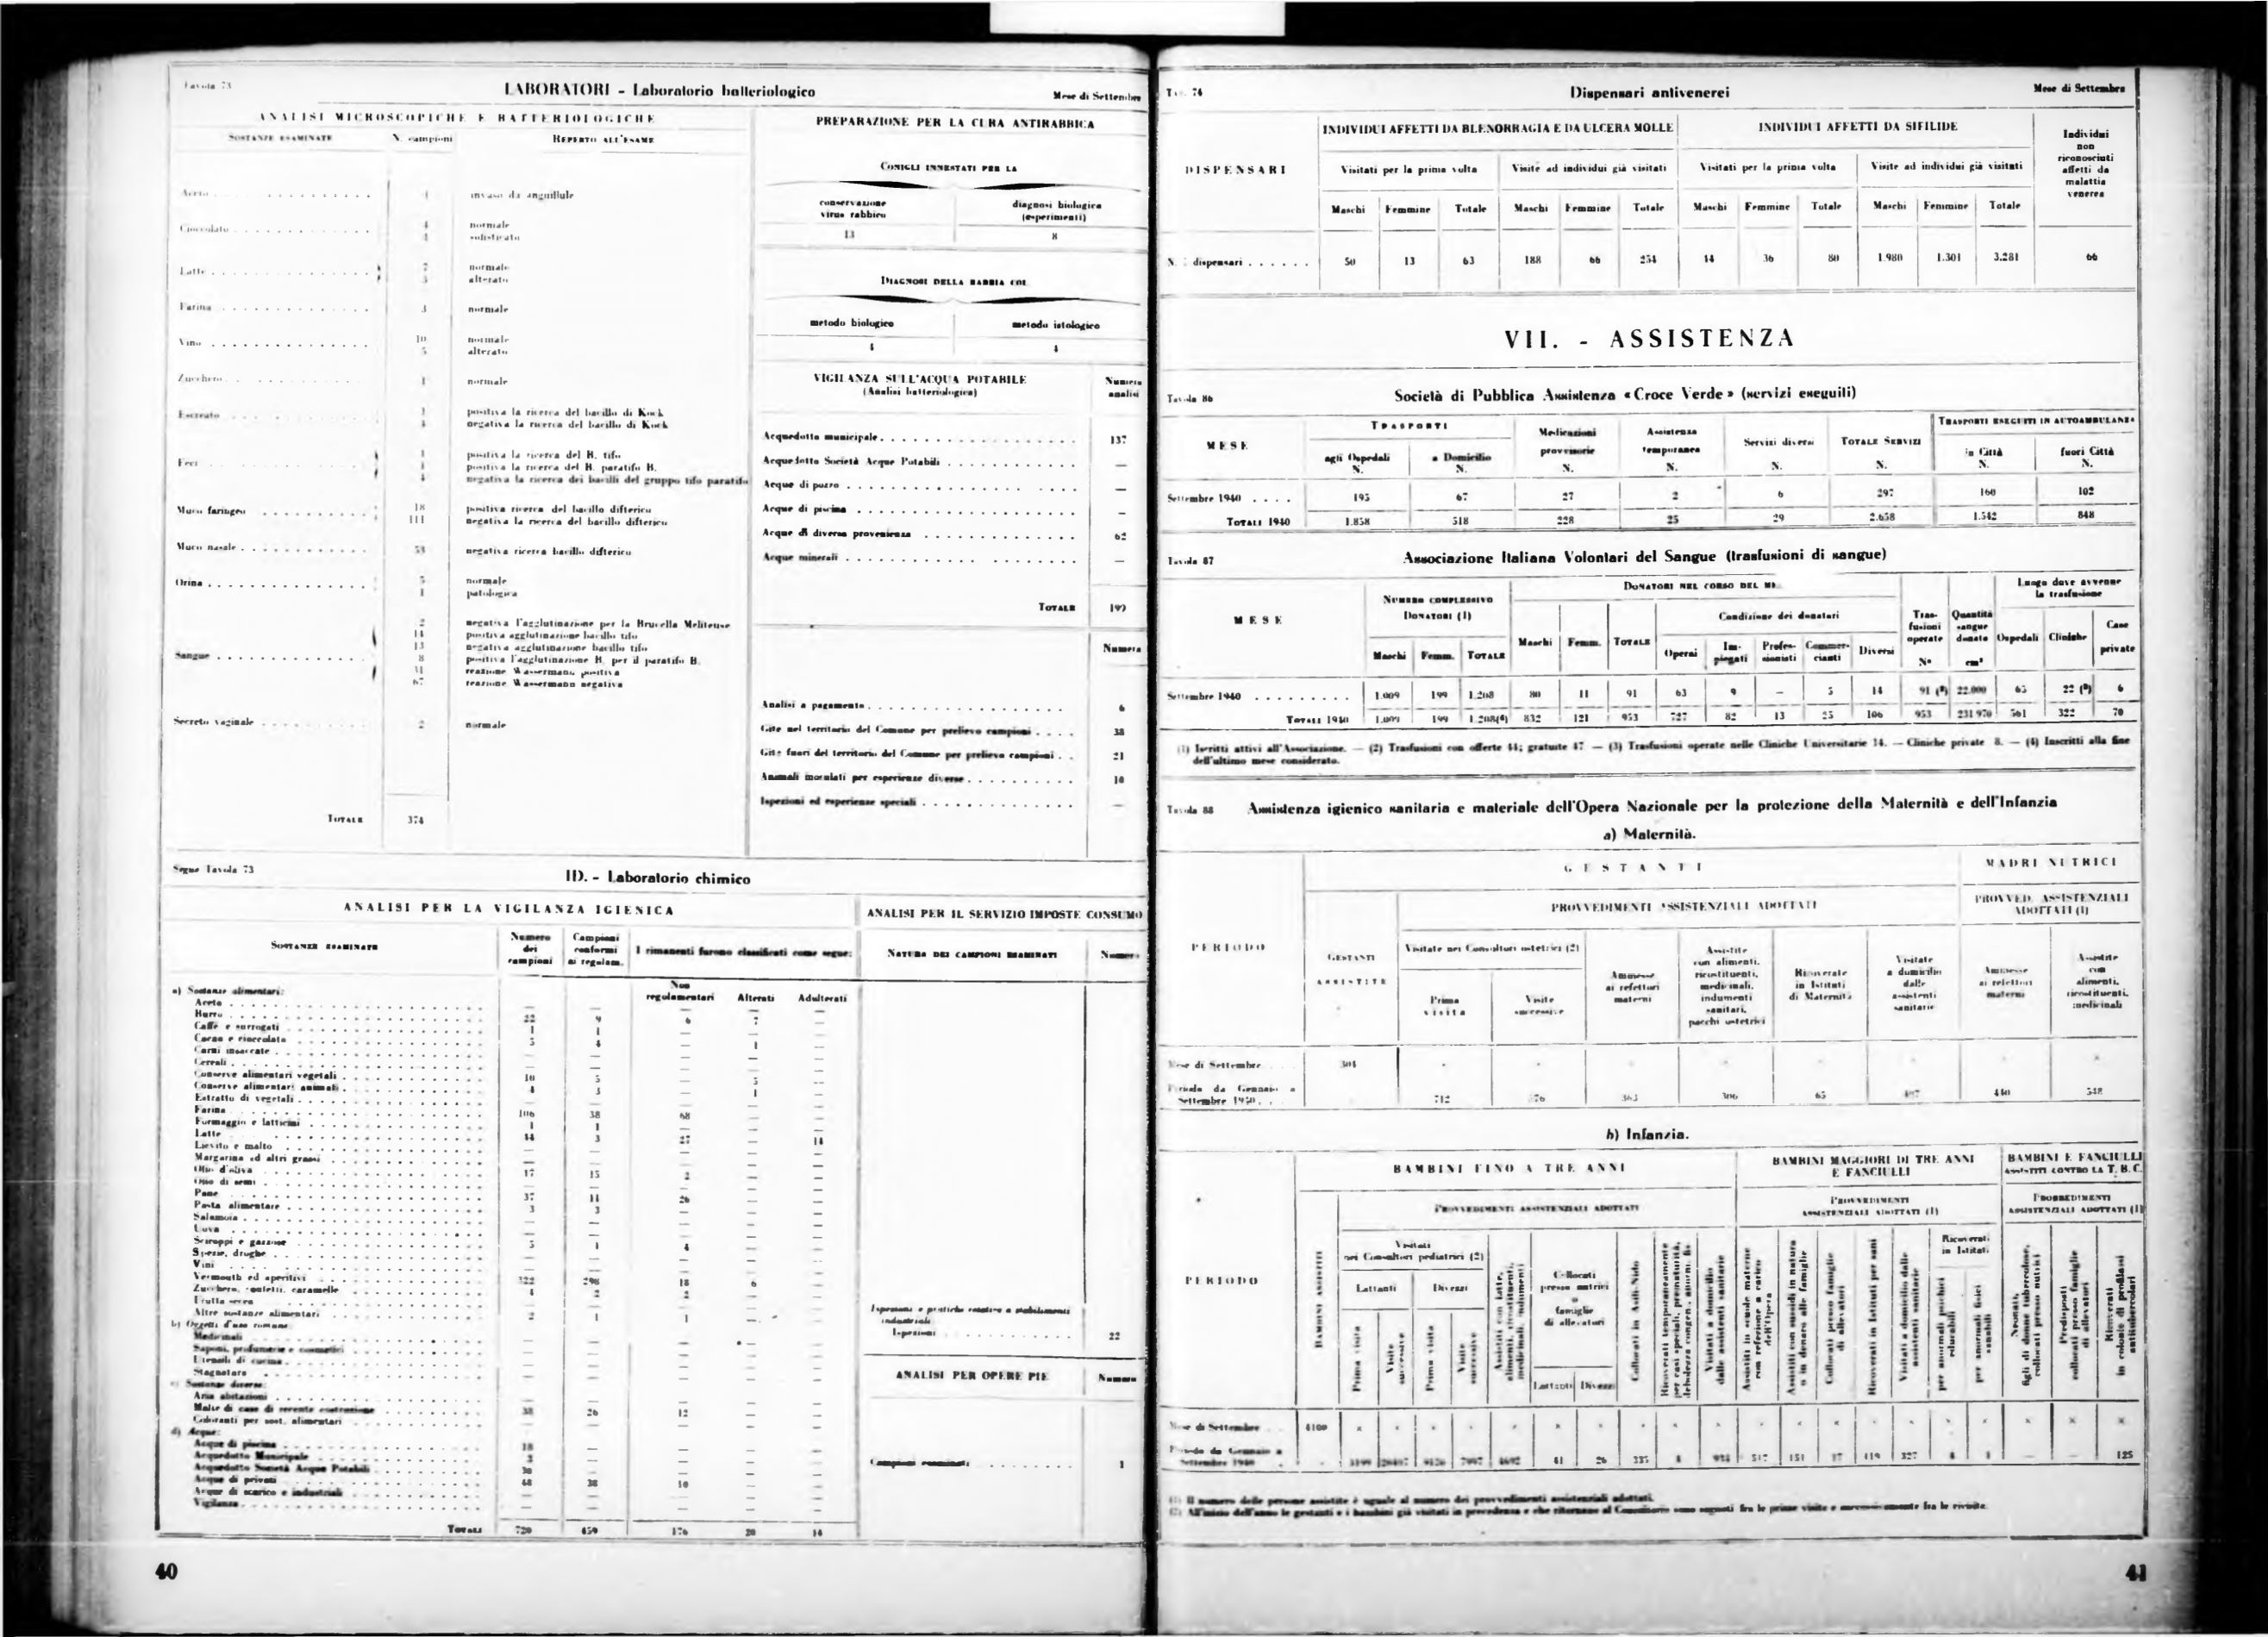 Tavola 73
LABORATORI - Laboratorio batteriologico
Mese di Settembre
ANALISI MICROSCOPICHE E BATTERIOLOGICHE
SOSTANZE ESAMINATE N. campioni REPERTO ALL'ESAME
Aceto invaso da anguillule
Cioccolato 4 normale
4 sofisticato
Latte 7 normale
3 alterato
Farina 3 normale
Vino 10 normale
5 alterato
Zucchero 1 normale
Escreato positiva la ricerca del bacillo di Kock
negativa la ricerca del bacillo di Kock
Feci 1 positiva la ricerca del B. tifo
positiva la ricerca del B. paratifo B.
4 negativa la ricerca dei bacilli del gruppo tifo paratifo
Muco faringeo 18 positiva ricerca del bacillo difterico
111 negativa la ricerca del bacillo difterico
Muco nasale 53 negativa ricerca bacillo difterico
Orina 5 normale
1 patologica
Sangue 2 negativa l'agglutinazione per la Brucella Melitense
14 positiva agglutinazione bacillo tifo
13 negativa agglutinazione bacillo tifo
8 positiva l'agglutinazione B. per il paratifo B.
31 reazione Wassermann positiva
67 reazione Wassermann negativa
Secreto vaginale 2 normale
TOTALE 374
PREPARAZIONE PER LA CURA ANTIRABBICA
CONIGLI INNESTATI PER LA
conservazione virus rabbico
diagnosi biologica (esperimenti)
13 8
DIAGNOSI DELLA RABBIA COL
metodo biologico metodo istologico
4 4
VIGILANZA SULL'ACQUA POTABILE
(Analisi batteriologica)
Numero analisi
Acquedotto municipale 137
Acquedotto Società Acque Potabili —
Acque di pozzo —
Acque di piscina —
Acque di diversa provenienza 62
Acque minerali —
TOTALE 199
Numero
Analisi a pagamento 6
Gite nel territorio del Comune per prelievo campioni 38
Gite fuori del territorio del Comune per prelievo campioni 21
Animali inoculati per esperienze diverse 10
Ispezioni ed esperienze speciali —
Segue Tavola 73
ID. - Laboratorio chimico
ANALISI PER LA VIGILANZA IGIENICA
SOSTANZE ESAMINATE
Numero dei campioni
Campioni conformi ai regolam.
I rimanenti furono classificati come segue:
Non regolamentari Alterati Adulterati
a) Sostanze alimentari:
Aceto — — — — —
Burro 22 9 6 7 —
Caffè e surrogati 1 1 — — —
Cacao e cioccolato 5 4 — 1 —
Carni insaccate — — — — —
Cereali — — — — —
Conserve alimentari vegetali 10 5 — 5 —
Conserve alimentari animali 4 3 — 1 —
Estratto di vegetali — — — — —
Farina 106 38 68 — —
Formaggio e latticini 1 1 — — —
Latte 44 3 27 — 14
Lievito e malto — — — — —
Margarina ed altri grassi — — — — —
Olio d'oliva 17 15 2 — —
Olio di semi — — — — —
Pane 37 11 26 — —
Pasta alimentare 3 3 — — —
Salamoia — — — — —
Uova — — — — —
Sciroppi e gazzose 5 1 4 — —
Spezie, droghe — — — — —
Vini 322 298 18 6 —
Vermouth ed aperitivi
Zucchero, confetti, caramelle 4 2 2 — —
Frutta secca
Altre sostanze alimentari 2 1 1 — —
b) Oggetti d'uso comune:
Medicinali
Saponi, profumerie e cosmetici
Utensili di cucina
Stagnature
c) Sostanze diverse:
Aria abitazioni
Malte di case di recente costruzione 38 26 12 — —
Coloranti per sost. alimentari
d) Acque:
Acque di piscina 18
Acquedotto Municipale
Acquedotto Società Acque Potabili 30
Acque di privati 48 38 10
Acque di scarico e industriali
Vigilanza
TOTALI 720 459 176 20 14
ANALISI PER IL SERVIZIO IMPOSTE CONSUMO
NATURA DEI CAMPIONI ESAMINATI Numero
Ispezioni e pratiche relative a stabilimenti industriali
Ispezioni 22
ANALISI PER OPERE PIE Numero
Campioni esaminati 1
40
Tav. 74
Dispensari antivenerei
Mese di Settembre
DISPENSARI
INDIVIDUI AFFETTI DA BLENORRAGIA E DA ULCERA MOLLE
INDIVIDUI AFFETTI DA SIFILIDE
Individui non riconosciuti affetti da malattia venerea
Visitati per la prima volta Visite ad individui già visitati Visitati per la prima volta Visite ad individui già visitati
Maschi Femmine Totale Maschi Femmine Totale Maschi Femmine Totale Maschi Femmine Totale
dispensari 50 13 63 188 66 254 44 36 80 1.980 1.301 3.281 66
VII. - ASSISTENZA
Tavola 86
Società di Pubblica Assistenza «Croce Verde» (servizi eseguiti)
MESE
TRASPORTI
agli Ospedali N. a Domicilio N.
Medicazioni provvisorie N.
Assistenza temporanea N.
Servizi diversi N.
TOTALE SERVIZI N.
TRASPORTI ESEGUITI IN AUTOAMBULANZA
in Città N. fuori Città N.
Settembre 1940 195 67 27 2 6 297 160 102
TOTALI 1940 1.858 518 228 25 29 2.658 1.542 848
Tavola 87
Associazione Italiana Volontari del Sangue (trasfusioni di sangue)
MESE
NUMERO COMPLESSIVO DONATORI (1)
Maschi Femm. TOTALE
DONATORI NEL CORSO DEL
Maschi Femm. TOTALE
Condizione dei donatori
Operai Impiegati Professionisti Commercianti Diversi
Trasfusioni operate N°
Quantità sangue donato cm³
Luogo dove avvenne la trasfusione
Ospedali Cliniche Case private
Settembre 1940 1.009 199 1.208 80 11 91 63 9 — 5 14 91 (²) 22.000 63 22 (³) 6
TOTALI 1940 1.009 199 1.208(⁴) 832 121 953 727 82 13 25 106 953 231.970 561 322 70
(1) Iscritti attivi all'Associazione. — (2) Trasfusioni con offerte 44; gratuite 47 — (3) Trasfusioni operate nelle Cliniche Universitarie 14. — Cliniche private 8. — (4) Inscritti alla fine
dell'ultimo mese considerato.
Tavola 88
Assistenza igienico sanitaria e materiale dell'Opera Nazionale per la protezione della Maternità e dell'Infanzia
a) Maternità.
PERIODO
GESTANTI
MADRI NUTRICI
GESTANTI ASSISTITE
PROVVEDIMENTI ASSISTENZIALI ADOTTATI
PROVVED. ASSISTENZIALI ADOTTATI (1)
Visitate nei Consultori ostetrici (2)
Prima visita Visite successive
Ammesse ai refettori materni
Assistite con alimenti, ricostituenti, medicinali, indumenti sanitari, pacchi ostetrici
Ricoverate in Istituti di Maternità
Visitate a domicilio dalle assistenti sanitarie
Ammesse ai refettori materni
Assistite con alimenti, ricostituenti, medicinali
Mese di Settembre 304
Periodo da Gennaio a
Settembre 1940 712 306 65 440 548
b) Infanzia.
PERIODO
BAMBINI FINO A TRE ANNI
BAMBINI MAGGIORI DI TRE ANNI E FANCIULLI
BAMBINI E FANCIULLI ASSISTITI CONTRO LA T. B. C.
BAMBINI ASSISTITI
PROVVEDIMENTI ASSISTENZIALI ADOTTATI
PROVVEDIMENTI ASSISTENZIALI ADOTTATI (1)
PROVVEDIMENTI ASSISTENZIALI ADOTTATI (1)
Visitati nei Consultori pediatrici (2)
Lattanti Divezzi
Prima visita
Visite successive
Prima visita
Visite successive
Assistiti con Latte, alimenti, ricostituenti, medicinali, indumenti
Collocati presso nutrici o famiglie di allevatori
Lattanti Divezzi
Collocati in Asili-Nido
Ricoverati temporaneamente per casi speciali, prematurità, debolezza congen., anorm. fis
Visitati a domicilio dalle assistenti sanitarie
Assistiti in scuole materne con refezione a carico dell'Opera
Assistiti con sussidi in natura o in denaro alle famiglie
Collocati presso famiglie di allevatori
Ricoverati in Istituti per sani
Visitati a domicilio dalle assistenti sanitarie
Ricoverati in Istituti
per anormali psichici educabili
per anormali fisici sanabili
Neonati, figli di donne tubercolose, collocati presso nutrici
Predisposti collocati presso famiglie di allevatori
Ricoverati in colonie di profilassi antitubercolari
Mese di Settembre 4100
Periodo da Gennaio a
Settembre 1940 7007 4692 41 26 335 517 151 119 327 — — 125
(1) Il numero delle persone assistite è uguale al numero dei provvedimenti assistenziali adottati.
(2) All'inizio dell'anno le gestanti e i bambini già visitati in precedenza e che ritornano al Consultorio sono segnati fra le prime visite e successivamente fra le rivisite.
41